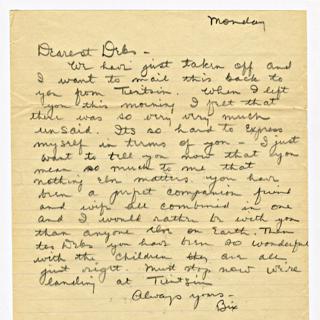 Monday
Dearest Debs -
We have just taken off and
I want to mail this back to
you from Tientsin. When I left
you this morning I felt that
there was so very very much
unsaid. Its so hard to express
myself in terms of you - I just
want to tell you now that you
mean so much to me that
nothing else matters. You have
been a perfect companion friend
and wife all combined in one
and I would rather be with you
than anyone else on Earth. Then
too Debs you have been so wonderful
with the children they are all
just right. Must stop now we're
landing at Tientsin
Always yours -
Bix